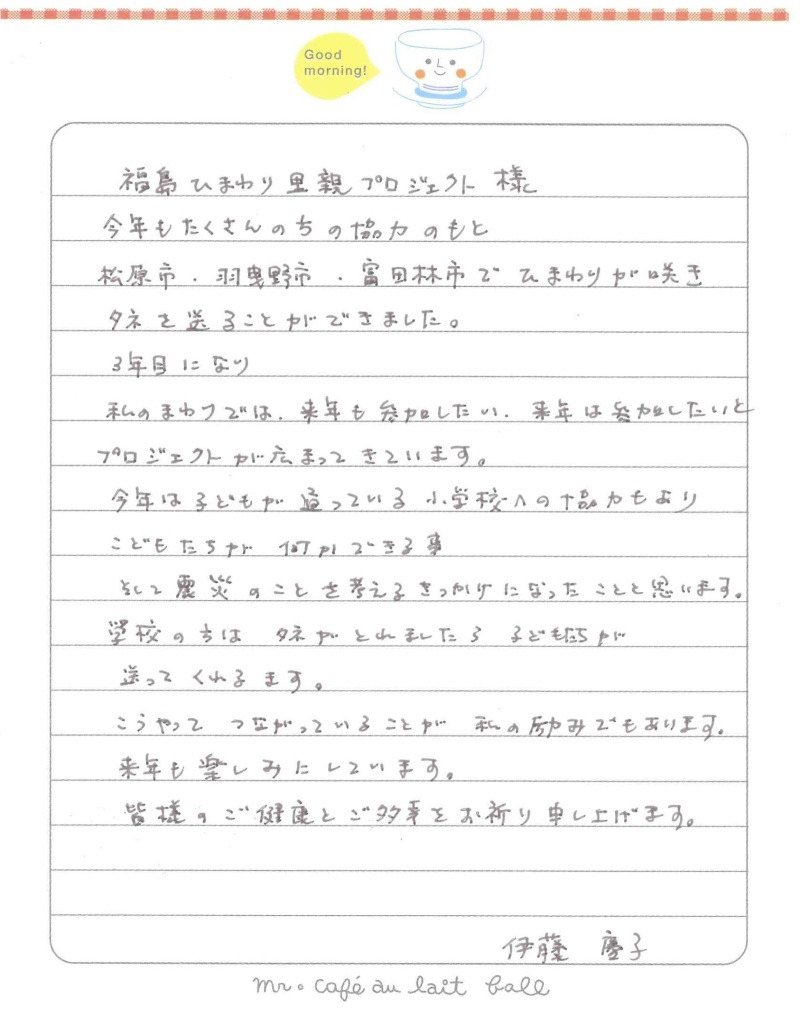 Good
morning!
福島ひまわり里親プロジェクト 様
今年もたくさんのちの協力のもと
松原市・羽曳野市・富田林市でひまわりが咲き
タネを送ることができました。
3年目になり
私のまわりでは、来年も参加したい、来年は参加したいと
プロジェクトが広まってきています。
今年は子どもが通っている小学校への協力もあり
こどもたちが何かできる事
そして震災のことを考えるきっかけになったことと思います。
学校のちは タネがとれましたら 子どもたちが
送ってくれるます。
こうやって つながっていることが 私の励みでもあります。
来年も楽しみにしています。
皆様のご健康とご多幸をお祈り申し上げます。
伊藤 慶子
mr. café au lait ball